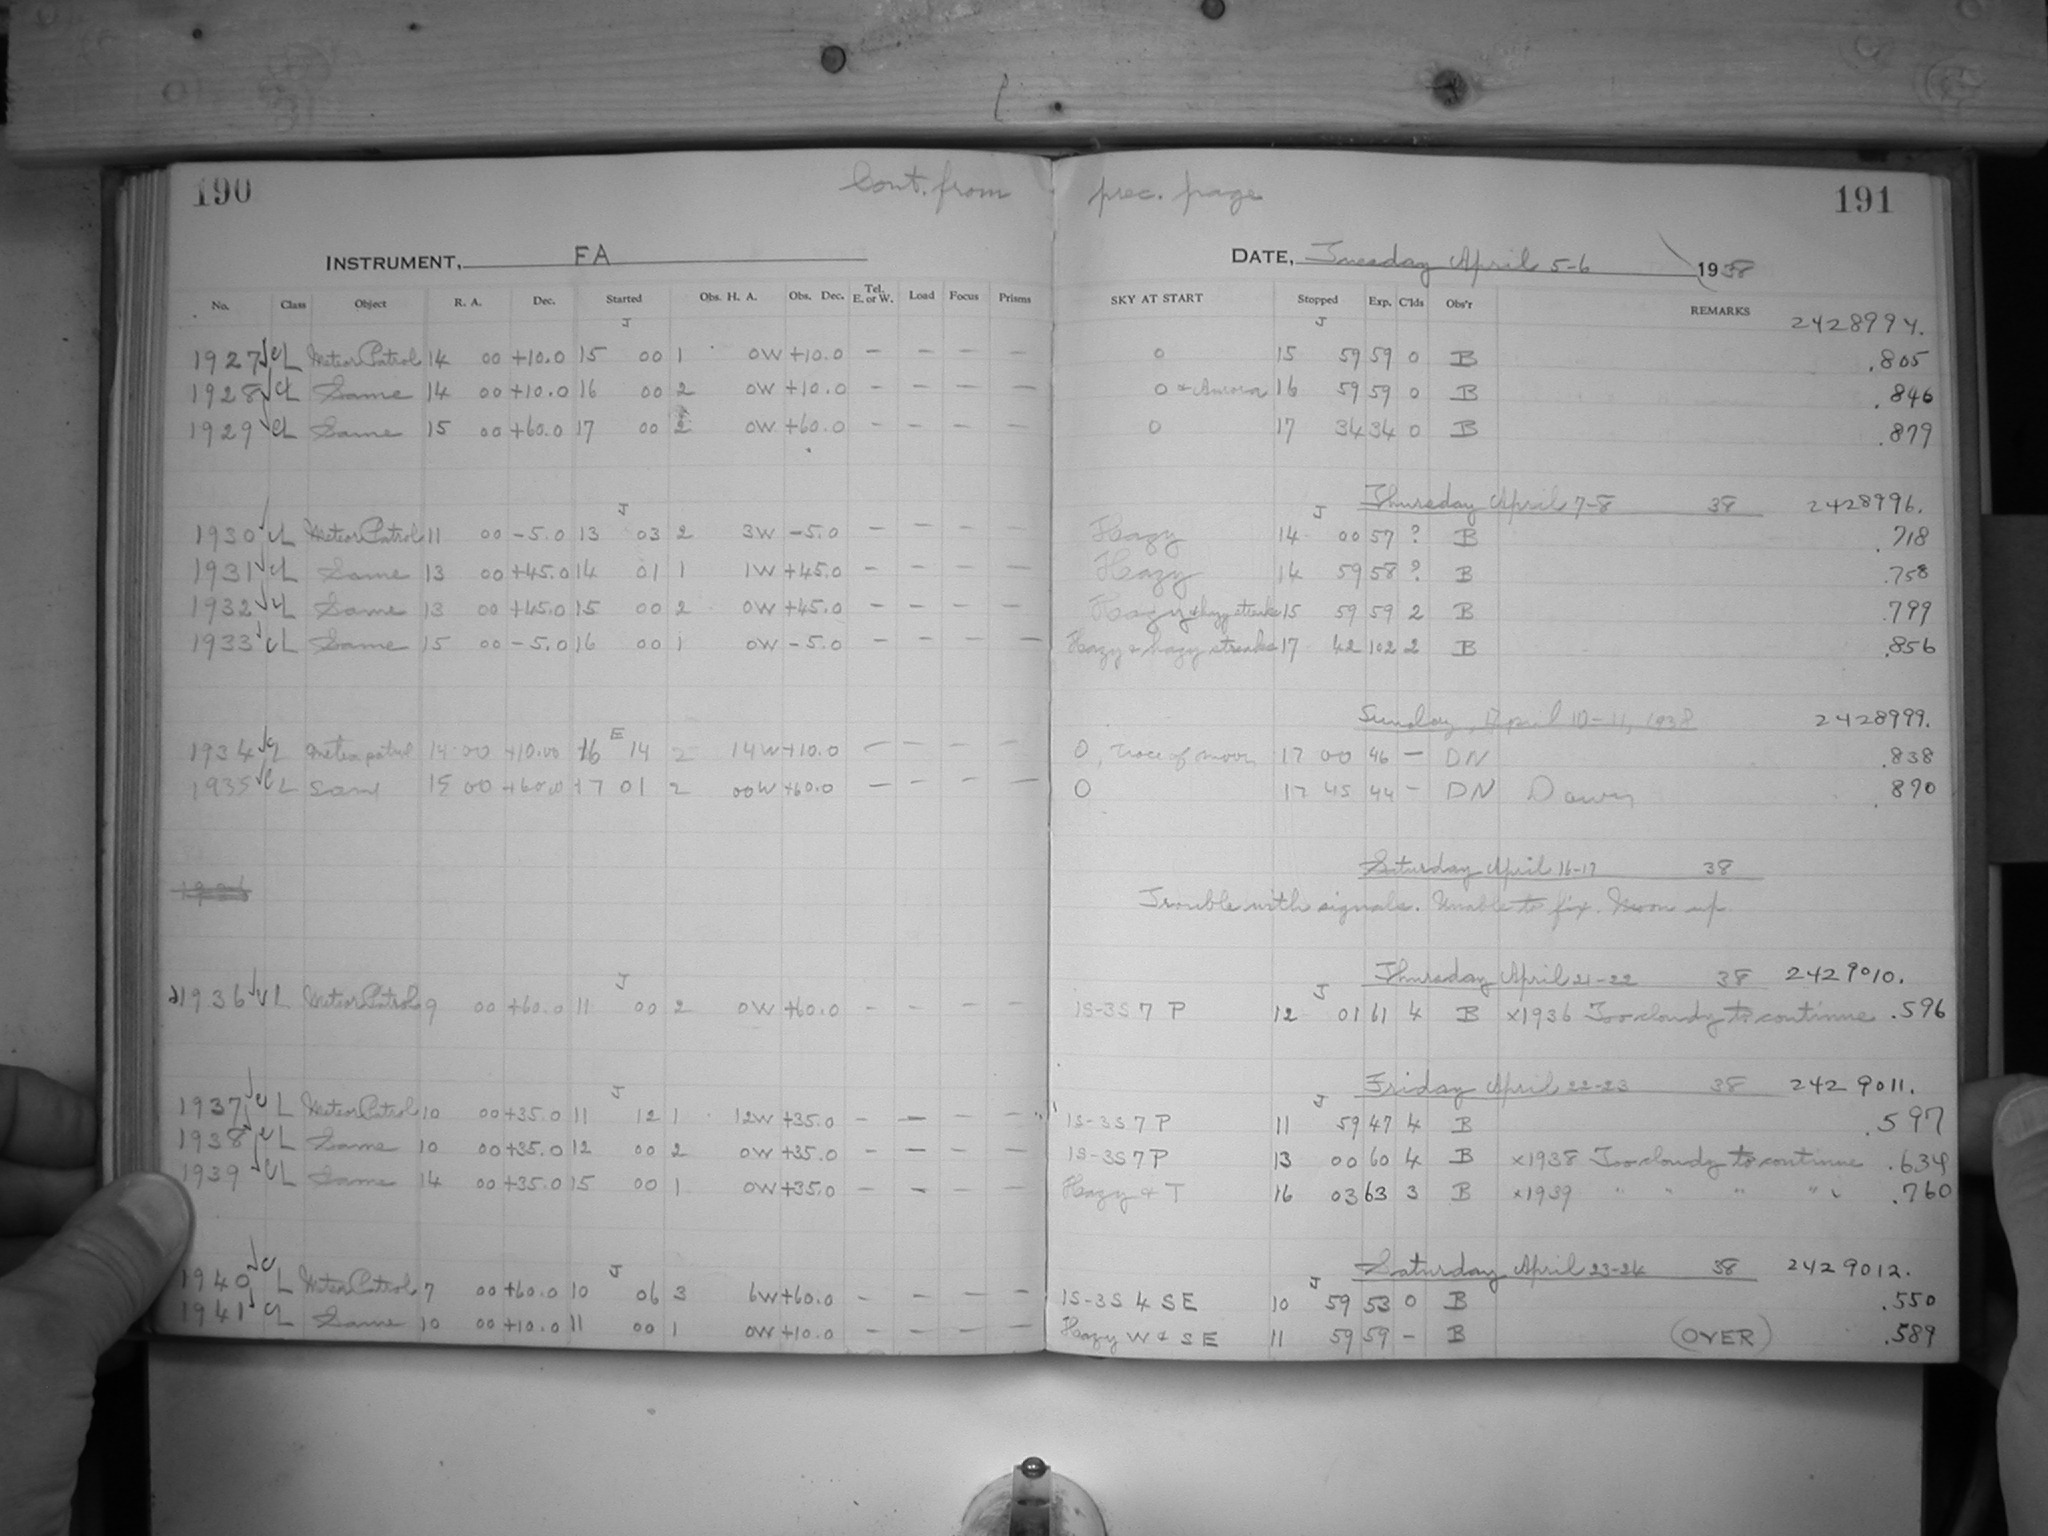 190 Cont. from prec. page 191
INSTRUMENT, FA DATE, Tuesday April 5-6 1938
No. Class Object R. A. Dec. Started Obs. H. A. Obs. Dec. Tel. E. or W. Load Focus Prisms SKY AT START Stopped Exp. C'lds Obs'r REMARKS
J J 2428994.
1927 CL Meteor Patrol 14 00 +10.0 15 00 1 0W +10.0 — — — — 0 15 59 59 0 B .805
1928 CL Same 14 00 +10.0 16 00 2 0W +10.0 — — — — 0 + Aurora 16 59 59 0 B .846
1929 CL Same 15 00 +60.0 17 00 2 0W +60.0 — — — — 0 17 34 34 0 B .879
Thursday April 7-8 38 2428996.
J J
1930 CL Meteor Patrol 11 00 -5.0 13 03 2 3W -5.0 — — — — Hazy 14 00 57 ? B .718
1931 CL Same 13 00 +45.0 14 01 1 1W +45.0 — — — — Hazy 14 59 58 ? B .758
1932 CL Same 13 00 +45.0 15 00 2 0W +45.0 — — — — Hazy & hazy streaks 15 59 59 2 B .799
1933 CL Same 15 00 -5.0 16 00 1 0W -5.0 — — — — Hazy & hazy streaks 17 42 102 2 B .856
Sunday, April 10-11, 1938 2428999.
1934 CL Meteor patrol 14 00 +10.00 16 E 14 2 14W +10.0 — — — — 0, trace of moon 17 00 46 — DN .838
1935 CL Same 15 00 +60.0 17 01 2 00W +60.0 — — — — 0 17 45 44 - DN Dawn .870
Saturday April 16-17 38
1936 Trouble with signals. Unable to fix. Moon up.
Thursday April 21-22 38 2429010.
J J
1936 CL Meteor Patrol 9 00 +60.0 11 00 2 0W +60.0 — — — — 1S-3S 7 P 12 01 61 4 B x1936 Too cloudy to continue .596
Friday April 22-23 38 2429011.
J J
1937 CL Meteor Patrol 10 00 +35.0 11 12 1 12W +35.0 — — — — 1S-3S 7 P 11 59 47 4 B .597
1938 CL Same 10 00 +35.0 12 00 2 0W +35.0 — — — — 1S-3S 7 P 13 00 60 4 B x1938 Too cloudy to continue .634
1939 CL Same 14 00 +35.0 15 00 1 0W +35.0 — — — — Hazy & T 16 03 63 3 B x1939 " " " " " .760
Saturday April 23-24 38 2429012.
J J
1940 CL Meteor Patrol 7 00 +60.0 10 06 3 6W +60.0 — — — — 1S-3S 4 SE 10 59 53 0 B .550
1941 CL Same 10 00 +10.0 11 00 1 0W +10.0 — — — — Hazy W & SE 11 59 59 - B (OVER) .589